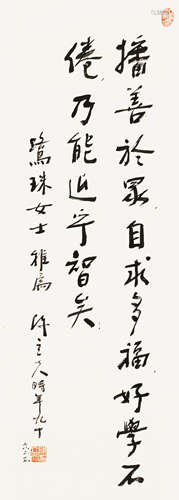 播善於眾自求多福好學不
倦乃能近乎智矣
鷺珠女士雅屬
陳立夫時年九十